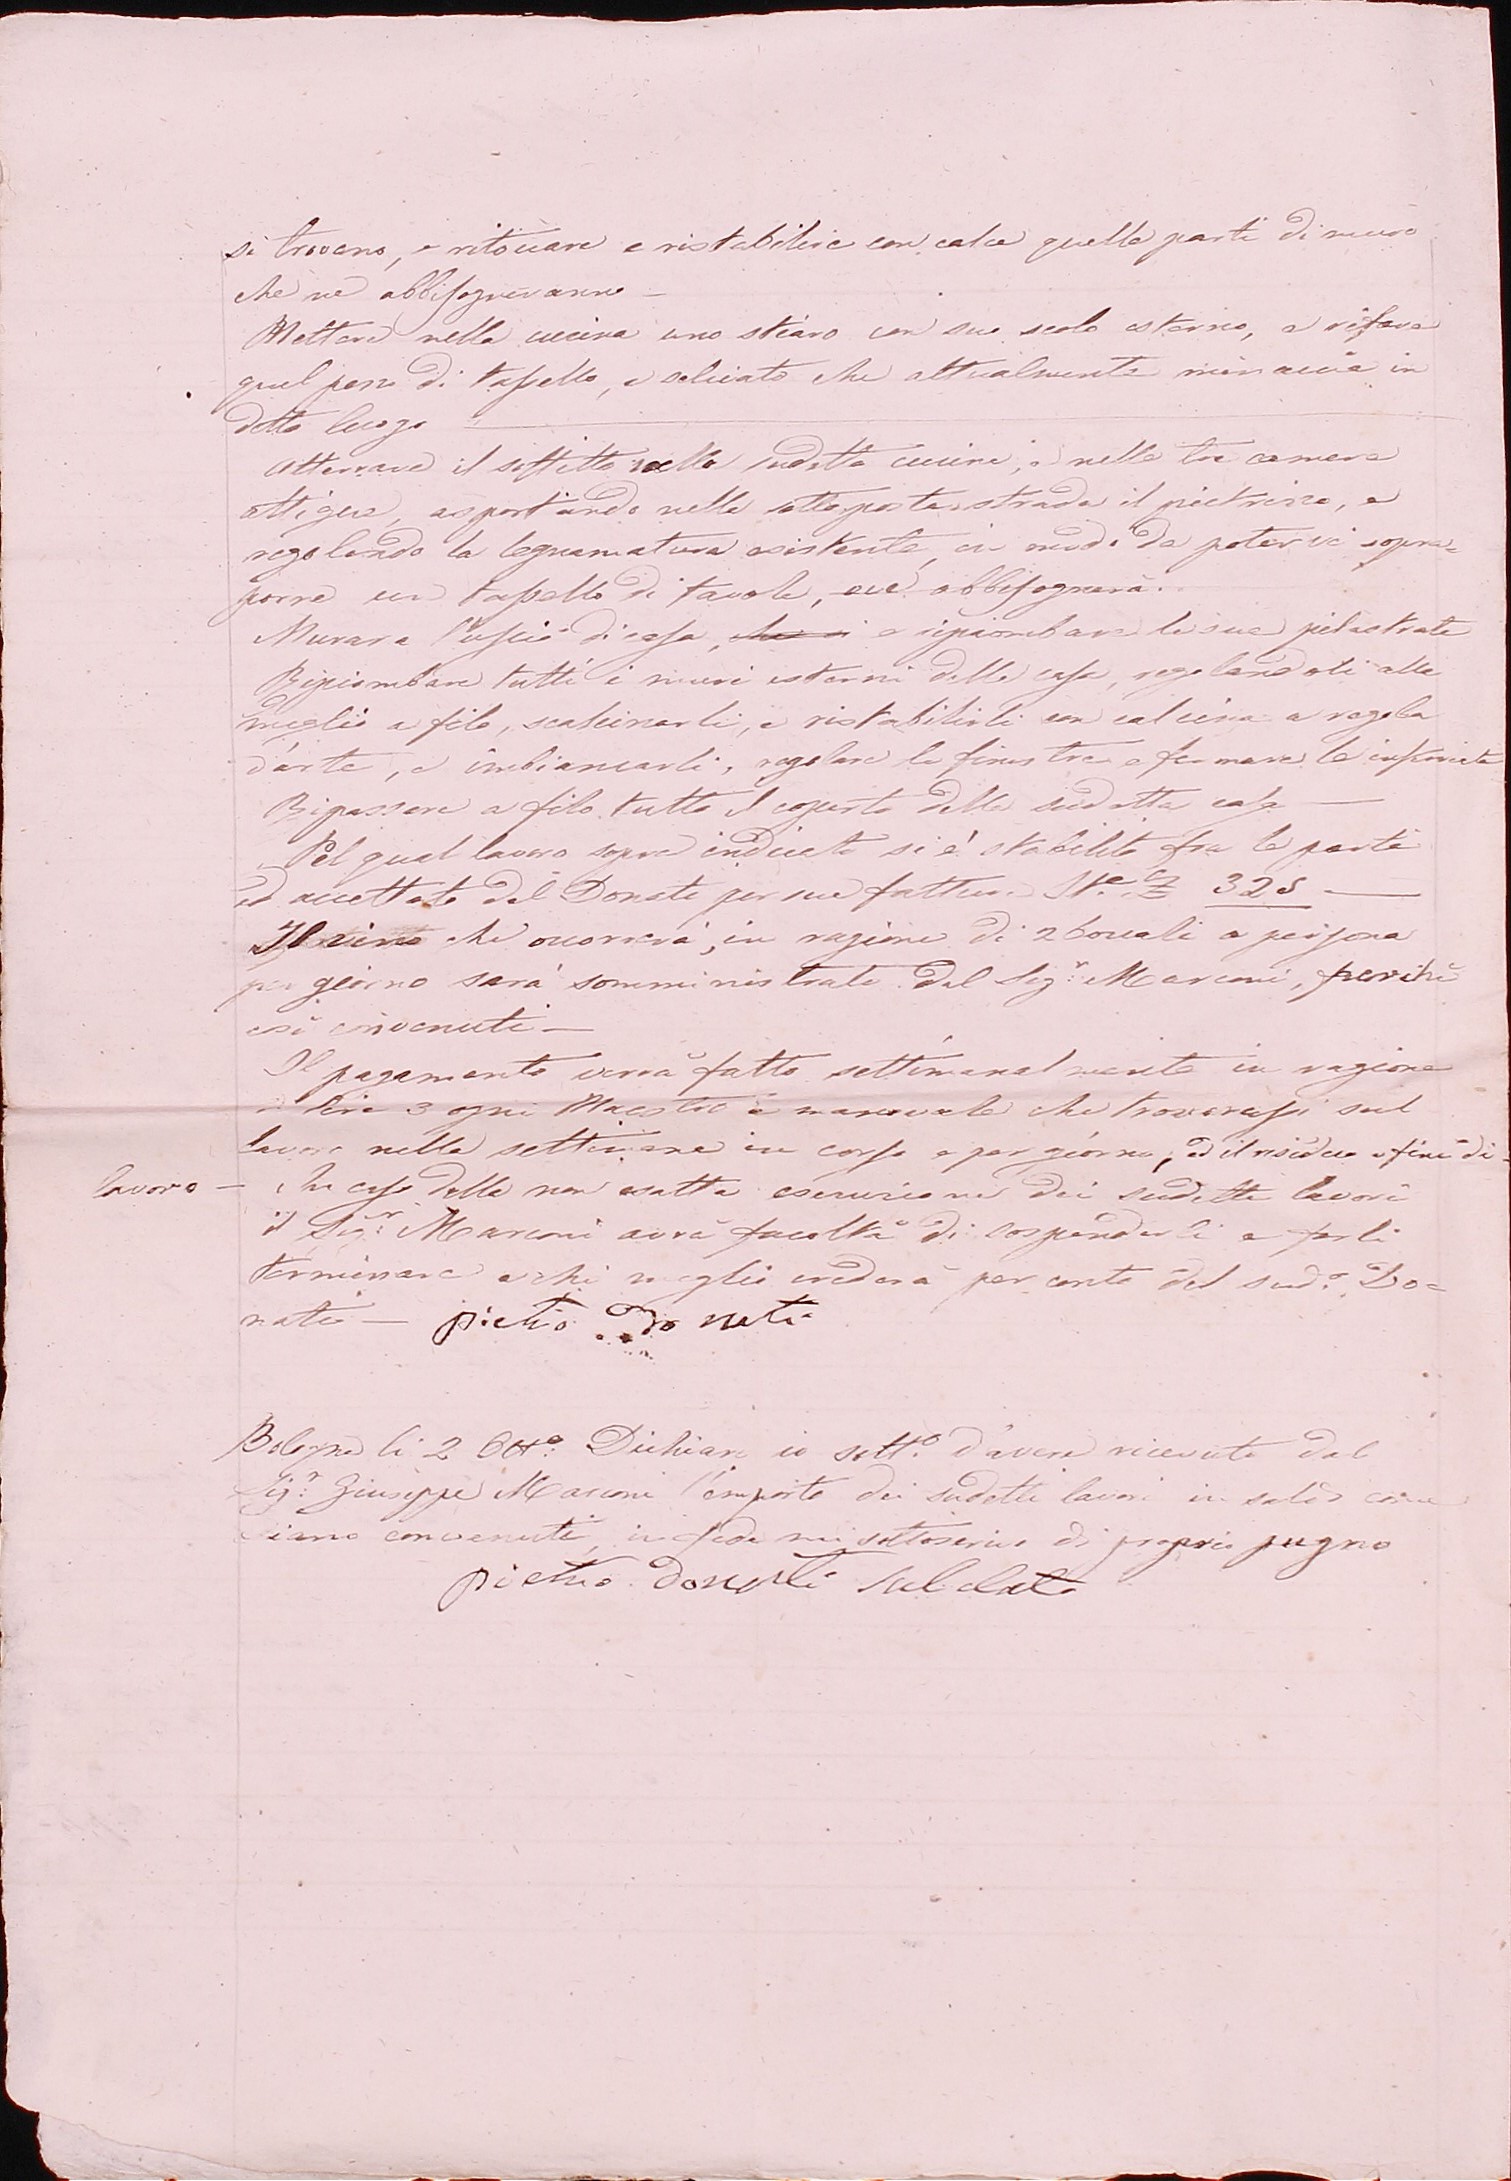 si trovano, e ritoccare e ristabilire con calce quelle parti di muro
che ne abbisogneranno —
Mettere nella cucina uno stiaro con suo scolo esterno, e rifare
quel pezzo di tassello, e seliciato che attualmente minaccia in
detto luogo —
Atterrare il soffitto nella sudetta cucina, e nelle tre camere
attigue, asportando nella sottoposta strada il pietrizzo, e
regolando la legnamatura esistente, in modo da potervi sopra=
porre un tassello di tavole, ove abbisognerà.
Murare l'uscio di casa, e ripiombare le sue pilastrate
Ripiombare tutti i muri esterni della casa, regolandoli alla
meglio a filo, scalcinarli, e ristabilirli con calcina a regola
d'arte, e imbiancarli, regolare le finestre e fermare le inferriate
Ripassare a filo tutto il coperto della sudetta casa —
Pel qual lavoro sopra indicato si è stabilito fra le parti
ed accettato dal Donati per sua fattura 325 —
Il vino che occorrerà, in ragione di 2 boccali a persona
per giorno sarà somministrato dal Sigr. Marconi, perchè
così convenuti —
Il pagamento verrà fatto settimanalmente in ragione
di lire 3 ogni Maestro e manovale che troverassi sul
lavoro nella settimana in corso e per giorno, ed il residuo a fine di
lavoro — In caso della non esatta esecuzione dei sudetti lavori
il Sigr. Marconi avrà facoltà di sospenderli e farli
terminare a chi meglio crederà per conto del sudo. Do=
nati — pietro donati
Bologna li 2 Otto. Dichiaro io sotto. d'avere ricevuto dal
Sigr. Giuseppe Marconi l'importo dei sudetti lavori in saldo come
siamo convenuti, in fede mi sottoscrivo di proprio pugno
pietro donati saldato